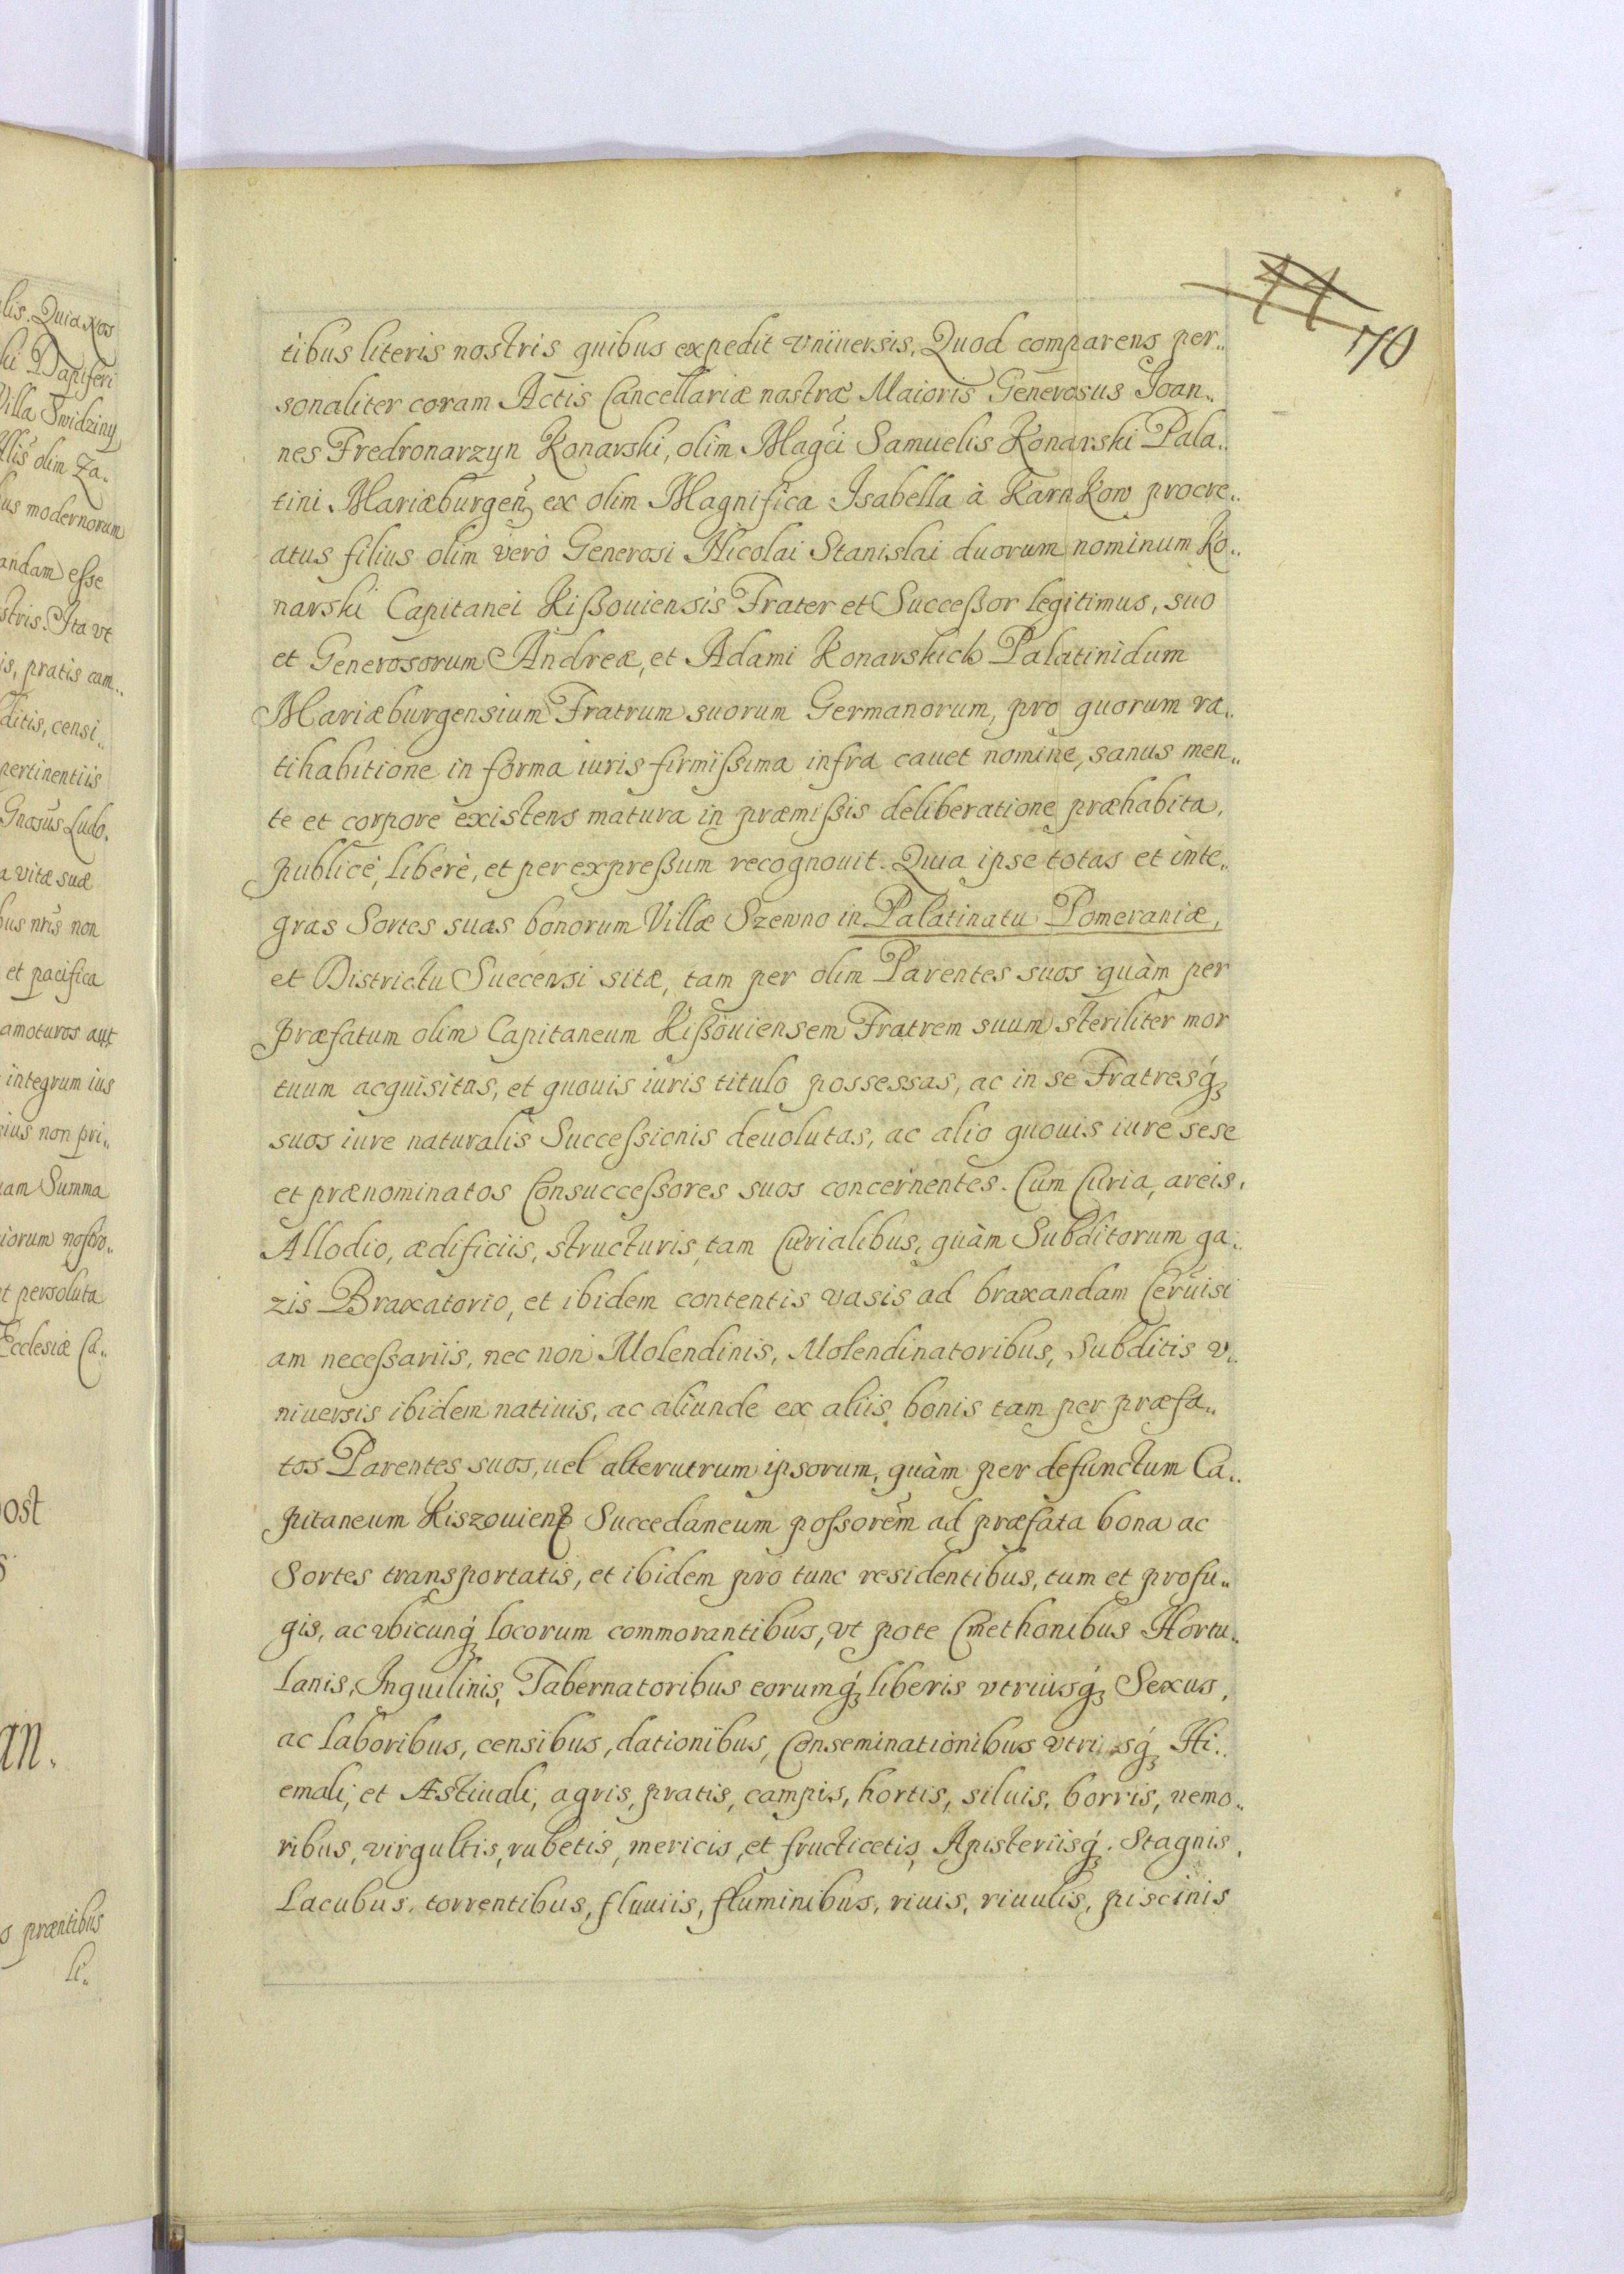 lis. Quia Nos
ki Dapiferi
Villa Swidziny
olim Za.
us modernorum
andam eſse
stris. Ita vt
is, pratis cam..
ditis, censi..
pertinentiis
Gnosus Ludo.
a vitæ suæ
bus nris non
et pacifica
amoturos aut
integrum ius
sius non pri..
iam Summa
iorum nostro..
t persoluta
Ecclesiæ Ca..
ost
an.
s præntibus
li..
44
170
tibus literis nostris quibus expedit vniuersis, Quod comparens per..
sonaliter coram Actis Cancellariæ nostræ Maioris Generosus Joan..
nes Fredronarzyn Konarski, olim Magci Samuelis Konarski Pala..
tini Mariæburgen ex olim Magnifica Isabella à Karnkow procre..
atus filius olim verò Generosi Nicolai Stanislai duorum nominum Ko..
narski Capitanei Kißouiensis Frater et Succeßor legitimus, suo
et Generosorum Andreæ, et Adami Konarskich Palatinidum
Mariæburgensium Fratrum suorum Germanorum, pro quorum ra..
tihabitione in forma iuris firmiſsima infra cauet nomine, sanus men..
te et corpore existens matura in præmiſsis deliberatione præhabita,
publicè, liberè, et per expreßum recognouit. Quia ipse totas et inte..
gras Sortes suas bonorum Villæ Szewno in Palatinatu Pomeraniæ,
et Districtu Suecensi sitæ, tam per olim Parentes suos quàm per
præfatum olim Capitaneum Kißouiensem Fratrem suum steriliter mor
tuum acquisitas, et quouis iuris titulo possessas, ac in se Fratresq́ʒ
suos iure naturalis Succeſsionis deuolutas, ac alio quouis iure sese
et prænominatos Consucceſsores suos concernentes. Cum Curia, areis,
Allodio, ædificiis, structuris, tam Curialibus, quàm Subditorum ga..
zis Braxatorio, et ibidem contentis vasis ad braxandam Ceruisi
am neceſsariis, nec non Molendinis, Molendinatoribus, Subditis v..
niuersis ibidem natiuis, ac aliunde ex aliis bonis tam per præfa..
tos Parentes suos, uel alterutrum ipsorum, quàm per defunctum Ca..
pitaneum Kiszouien Succedaneum poſsorem ad præfata bona ac
Sortes transportatis, et ibidem pro tunc residentibus, tum et profu..
gis, ac vbicunq́ʒ locorum commorantibus, vt pote Cmethonibus Hortu..
lanis, Inquilinis, Tabernatoribus eorumq́ʒ liberis vtriusq́ʒ Sexus,
ac laboribus, censibus, dationibus, Conseminationibus vtriusq́ʒ Hi..
emali, et Æstiuali, agris, pratis, campis, hortis, siluis, borris, nemo..
ribus, virgultis, rubetis, mericis, et fructicetis, Apisteriisq́ʒ. Stagnis,
Lacubus, torrentibus, fluuiis, fluminibus, riuis, riuulis, piscinis